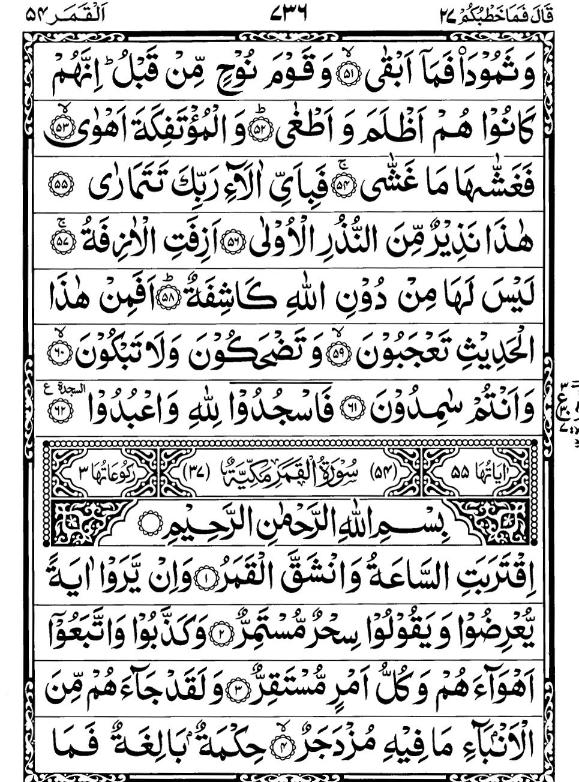 قَالَ فَمَا خَطْبُكُمْ ٢٧ ٧٣٦ اَلْقَمَر ٥٤
وَ ثَمُوْدَا۟ فَمَاۤ اَبْقٰى ﴿٥١﴾ وَ قَوْمَ نُوْحٍ مِّنْ قَبْلُ ؕ اِنَّهُمْ
كَانُوْا هُمْ اَظْلَمَ وَ اَطْغٰى ﴿٥٢﴾ وَ الْمُؤْتَفِكَةَ اَهْوٰى ﴿٥٣﴾
فَغَشّٰىهَا مَا غَشّٰى ﴿٥٤﴾ فَبِاَيِّ اٰلَآءِ رَبِّكَ تَتَمَارٰى ﴿٥٥﴾
هٰذَا نَذِيْرٌ مِّنَ النُّذُرِ الْاُوْلٰى ﴿٥٦﴾ اَزِفَتِ الْاٰزِفَةُ ﴿٥٧﴾
لَيْسَ لَهَا مِنْ دُوْنِ اللّٰهِ كَاشِفَةٌ ﴿٥٨﴾ اَفَمِنْ هٰذَا
الْحَدِيْثِ تَعْجَبُوْنَ ﴿٥٩﴾ وَ تَضْحَكُوْنَ وَلَا تَبْكُوْنَ ﴿٦٠﴾
وَ اَنْتُمْ سٰمِدُوْنَ ﴿٦١﴾ فَاسْجُدُوْا لِلّٰهِ وَ اعْبُدُوْا ﴿٦٢﴾ السجدة ع
اٰيَاتُهَا ٥٥ (٥٤) سُوْرَةُ الْقَمَرِ مَكِّيَّةٌ (٣٧) رُكُوْعَاتُهَا ٣
بِسْمِ اللّٰهِ الرَّحْمٰنِ الرَّحِيْمِ
اِقْتَرَبَتِ السَّاعَةُ وَ انْشَقَّ الْقَمَرُ ﴿١﴾ وَاِنْ يَّرَوْا اٰيَةً
يُّعْرِضُوْا وَ يَقُوْلُوْا سِحْرٌ مُّسْتَمِرٌّ ﴿٢﴾ وَ كَذَّبُوْا وَ اتَّبَعُوْۤا
اَهْوَآءَهُمْ وَ كُلُّ اَمْرٍ مُّسْتَقِرٌّ ﴿٣﴾ وَ لَقَدْ جَآءَهُمْ مِّنَ
الْاَنْۢبَآءِ مَا فِيْهِ مُزْدَجَرٌ ﴿٤﴾ حِكْمَةٌۢ بَالِغَةٌ فَمَا